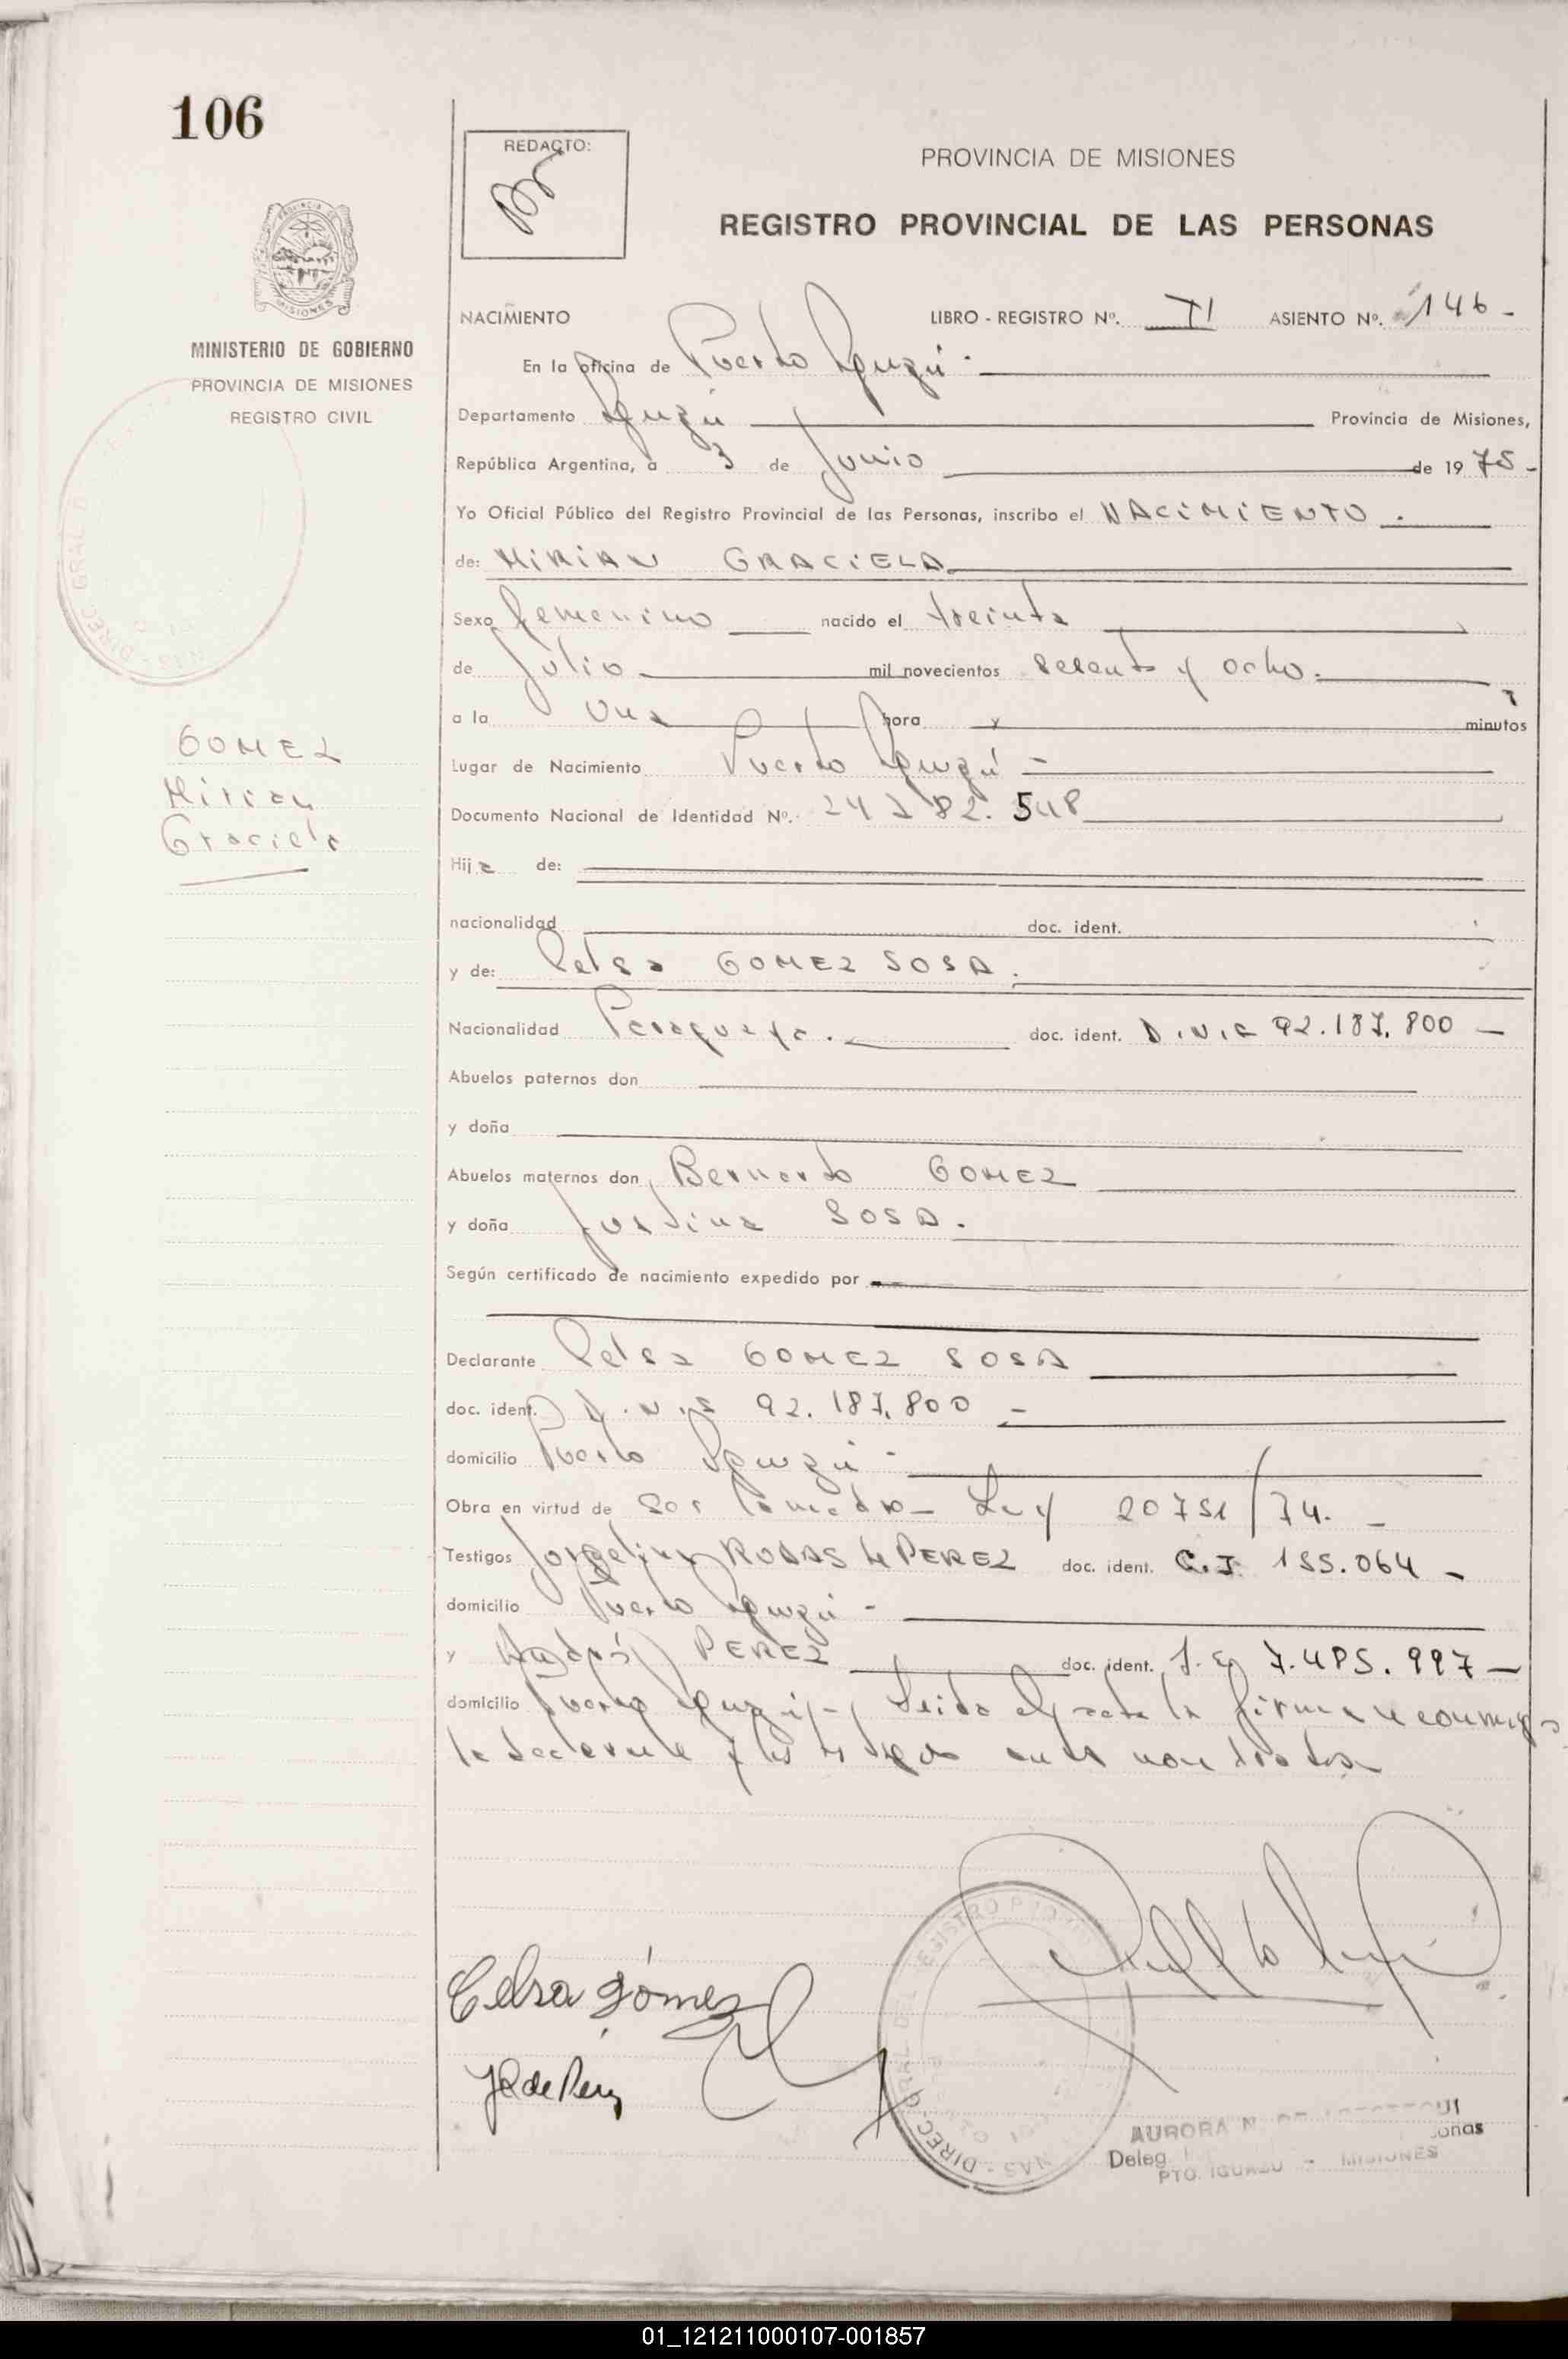 106
REDACTO:
PROVINCIA DE MISIONES
REGISTRO PROVINCIAL DE LAS PERSONAS
MINISTERIO DE GOBIERNO
PROVINCIA DE MISIONES
REGISTRO CIVIL
NACIMIENTO LIBRO - REGISTRO Nº. II ASIENTO Nº. 146 -
En la oficina de Puerto Iguazú -
Departamento Iguazú Provincia de Misiones,
República Argentina, a 3 de Junio de 1975 -
Yo Oficial Público del Registro Provincial de las Personas, inscribo el NACIMIENTO .
de: MIRIAN GRACIELA
Sexo femenino nacido el treinta
de Julio mil novecientos sesenta y ocho.
a la una hora y minutos
GOMEZ
Mirian
Graciela
Lugar de Nacimiento Puerto Iguazú -
Documento Nacional de Identidad Nº. 24.282.548
Hija de:
nacionalidad doc. ident.
y de: Celsa GOMEZ SOSA.
Nacionalidad Paraguaya. doc. ident. D.N.I. 92.187.800 -
Abuelos paternos don
y doña
Abuelos maternos don Bernardo GOMEZ
y doña Justina SOSA.
Según certificado de nacimiento expedido por
Declarante Celsa GOMEZ SOSA
doc. ident. D.N.I. 92.187.800 -
domicilio Puerto Iguazú -
Obra en virtud de ser la madre - Ley 20751/74. -
Testigos Jorgelina RODAS de PEREZ doc. ident. C.I. 155.064 -
domicilio Puerto Iguazú -
y PEREZ doc. ident. L.E. 7.485.997 -
domicilio Puerto Iguazú - Leida el acta la firman conmigo
la declarante y los testigos
Celsa Gómez
JR de Perez
DIREC. GRAL. DEL REGISTRO
AURORA
Deleg
PTO. IGUAZU - MISIONES
01_121211000107-001857